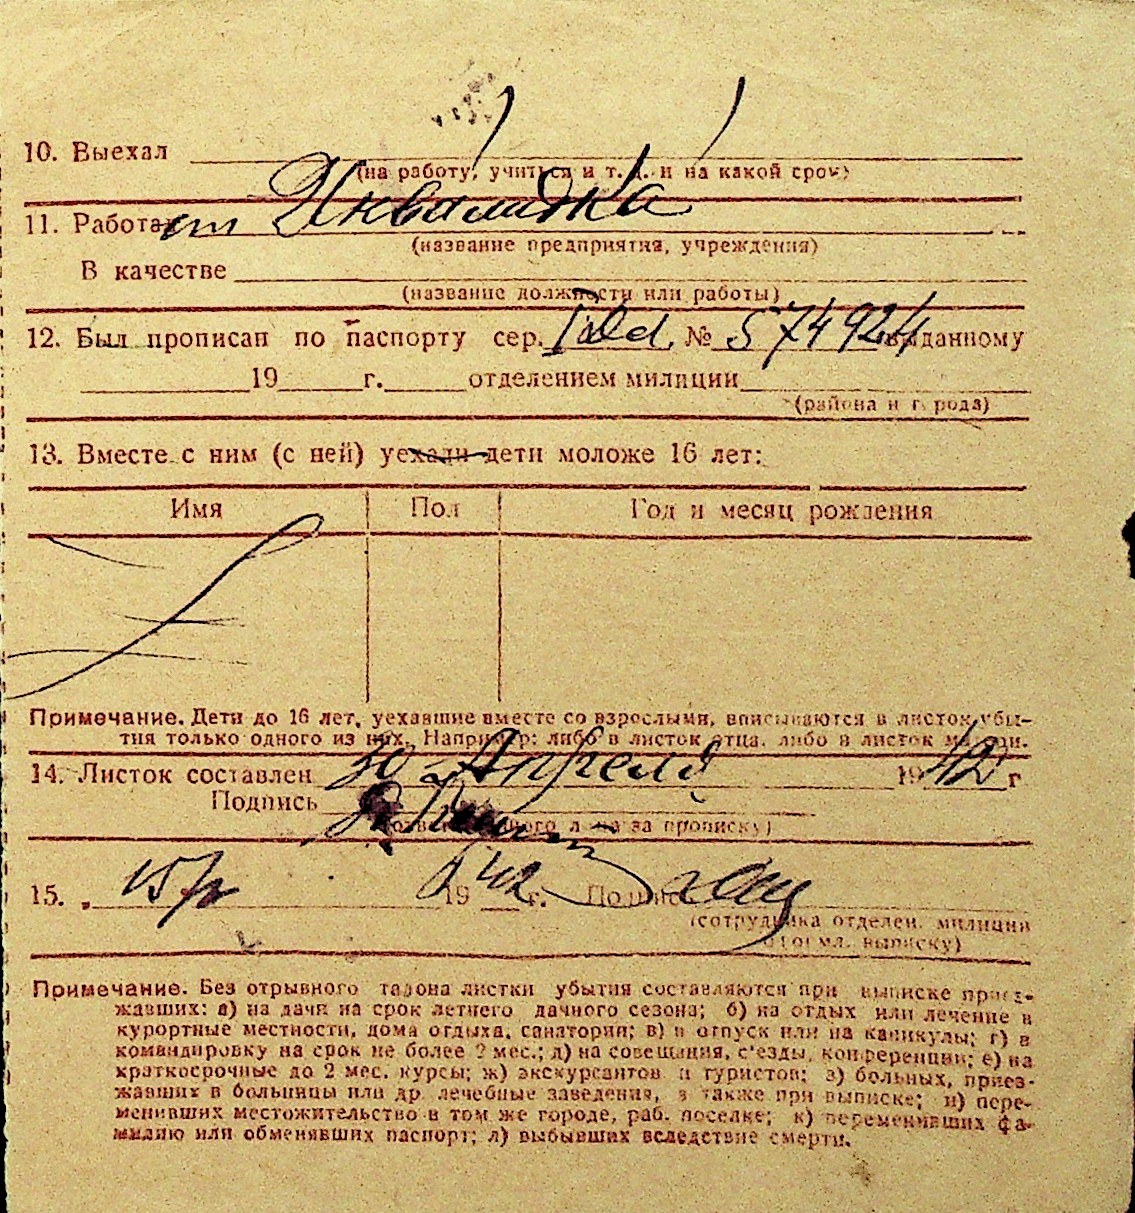 10. Выехал
(на работу, учиться и т. д. и на какой срок)
11. Работает Инвалидка
(название предприятия, учреждения)
В качестве
(название должности или работы)
12. Был прописан по паспорту сер. № 574924 выданному
19 г. отделением милиции
(района и города)
13. Вместе с ним (с ней) уехали дети моложе 16 лет:
Имя Пол Год и месяц рождения
Примечание. Дети до 16 лет, уехавшие вместе со взрослыми, вписываются в листок убы-
тия только одного из них. Например: либо в листок отца, либо в листок матери.
14. Листок составлен 30 Апреля 1942 г
Подпись
(ответственного лица за прописку)
15. 19 42 г. Подпись
(сотрудника отделен. милиции
оформл. выписку)
Примечание. Без отрывного талона листки убытия составляются при выписке приез-
жавших: а) на дачи на срок летнего дачного сезона; б) на отдых или лечение в
курортные местности, дома отдыха, санатории; в) в отпуск или на каникулы; г) в
командировку на срок не более 2 мес.; д) на совещания, с'езды, конференции; е) на
краткосрочные до 2 мес. курсы; ж) экскурсантов и туристов; з) больных, приез-
жавших в больницы или др. лечебные заведения, а также при выписке; и) пере-
менивших местожительство в том же городе, раб. поселке; к) переменивших фа-
милию или обменявших паспорт; л) выбывших вследствие смерти.